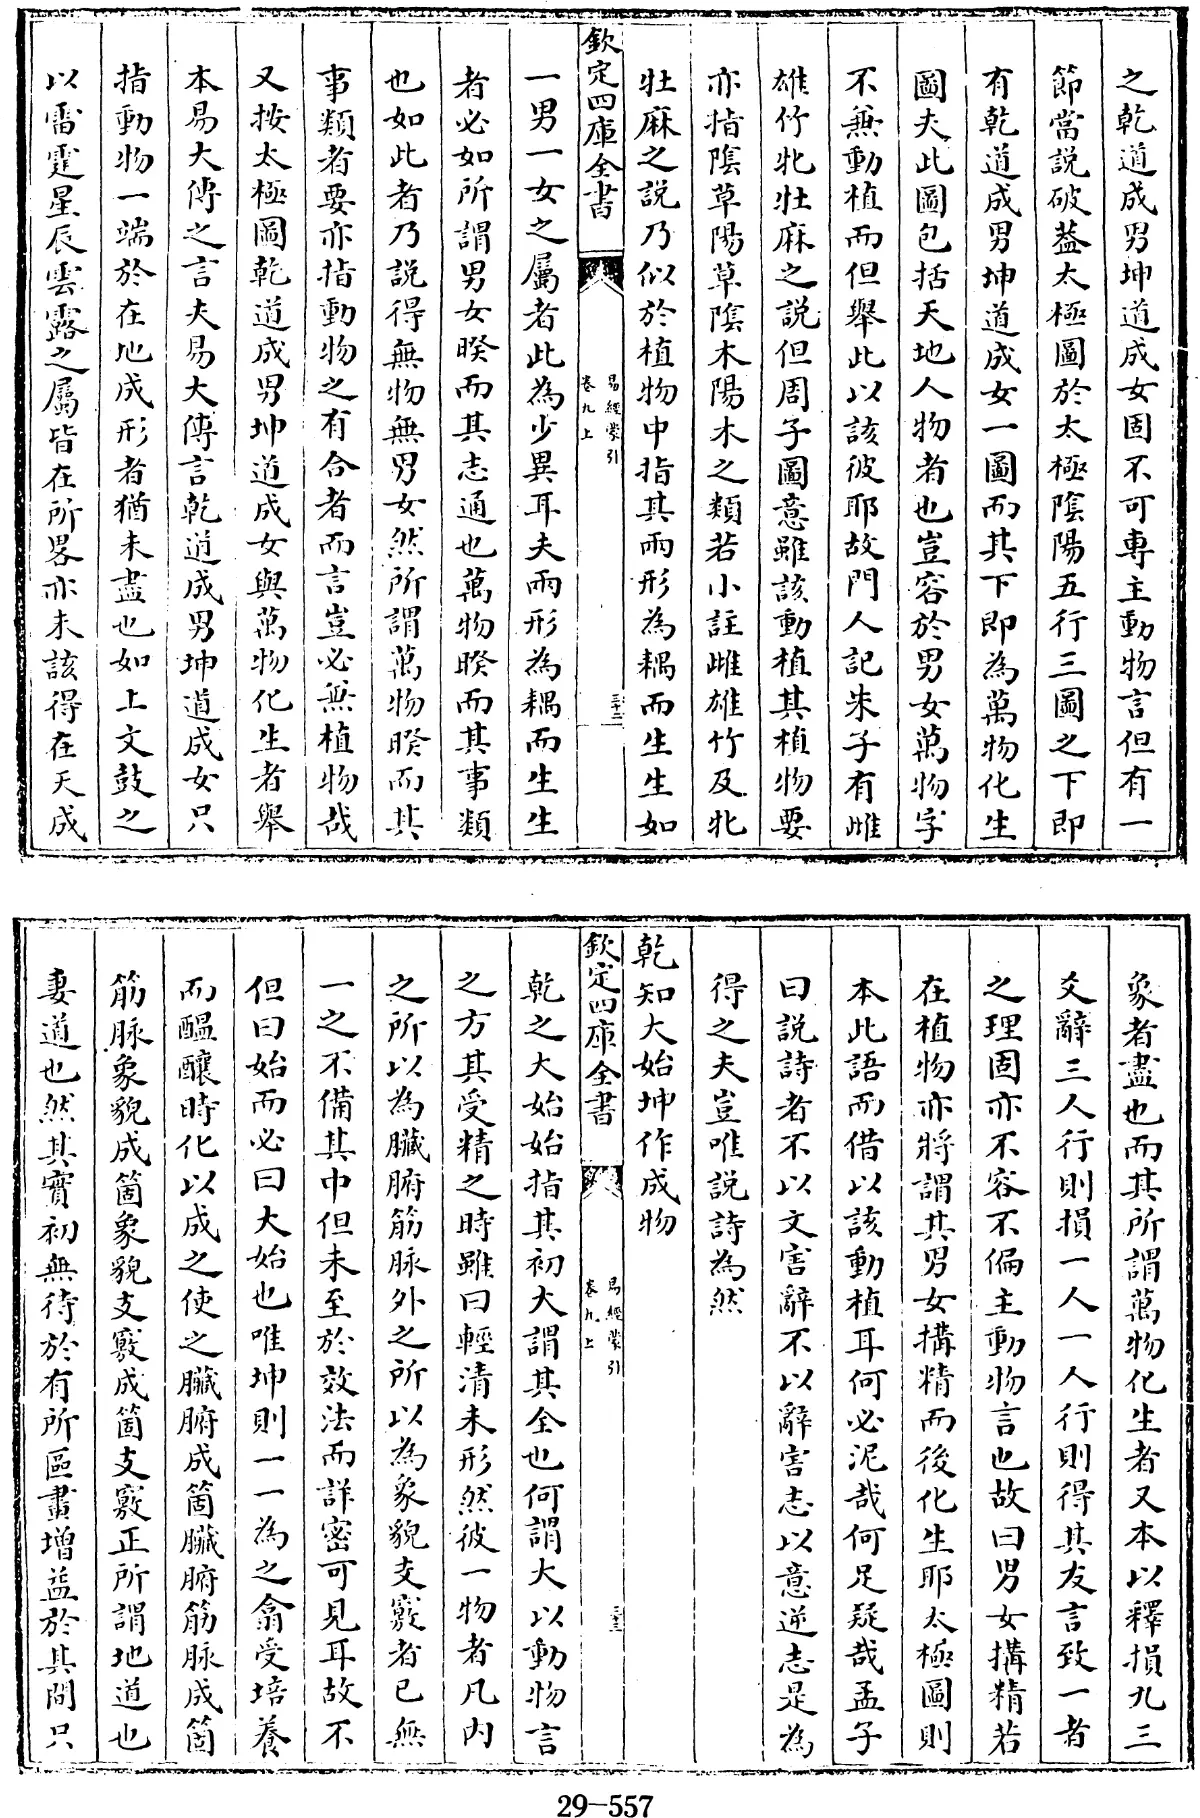 之乾道成男坤道成女固不可專主動物言但有一
節當説破葢太極圖於太極隂陽五行三圖之下即
有乾道成男坤道成女一圖而其下即為萬物化生
圖夫此圖包括天地人物者也豈容於男女萬物字
不兼動植而但舉此以該彼耶故門人記朱子有雌
雄竹牝牡麻之説但周子圖意雖該動植其植物要
亦指隂草陽草隂木陽木之類若小註雌雄竹及牝
牡麻之説乃似於植物中指其兩形為耦而生生如
欽定四庫全書
易經蒙引
卷九上
三十二
一男一女之屬者此為少異耳夫兩形為耦而生生
者必如所謂男女睽而其志通也萬物睽而其事類
也如此者乃説得無物無男女然所謂萬物睽而其
事類者要亦指動物之有合者而言豈必無植物哉
又按太極圖乾道成男坤道成女與萬物化生者舉
本易大傳之言夫易大傳言乾道成男坤道成女只
指動物一端於在地成形者猶未盡也如上文鼓之
以雷霆星辰雲露之屬皆在所畧亦未該得在天成
象者盡也而其所謂萬物化生者又本以釋損九三
爻辭三人行則損一人一人行則得其友言致一者
之理固亦不容不偏主動物言也故曰男女搆精若
在植物亦將謂其男女搆精而後化生耶太極圖則
本此語而借以該動植耳何必泥哉何足疑哉孟子
曰説詩者不以文害辭不以辭害志以意逆志是為
得之夫豈唯説詩為然
乾知大始坤作成物
欽定四庫全書
易經蒙引
卷九上
三十三
乾之大始始指其初大謂其全也何謂大以動物言
之方其受精之時雖曰輕清未形然彼一物者凡内
之所以為臟腑筋脉外之所以為象貌支竅者已無
一之不備其中但未至於效法而詳密可見耳故不
但曰始而必曰大始也唯坤則一一為之翕受培養
而醖釀時化以成之使之臟腑成箇臟腑筋脉成箇
筋脉象貌成箇象貌支竅成箇支竅正所謂地道也
妻道也然其實初無待於有所區畫增益於其間只
29-557